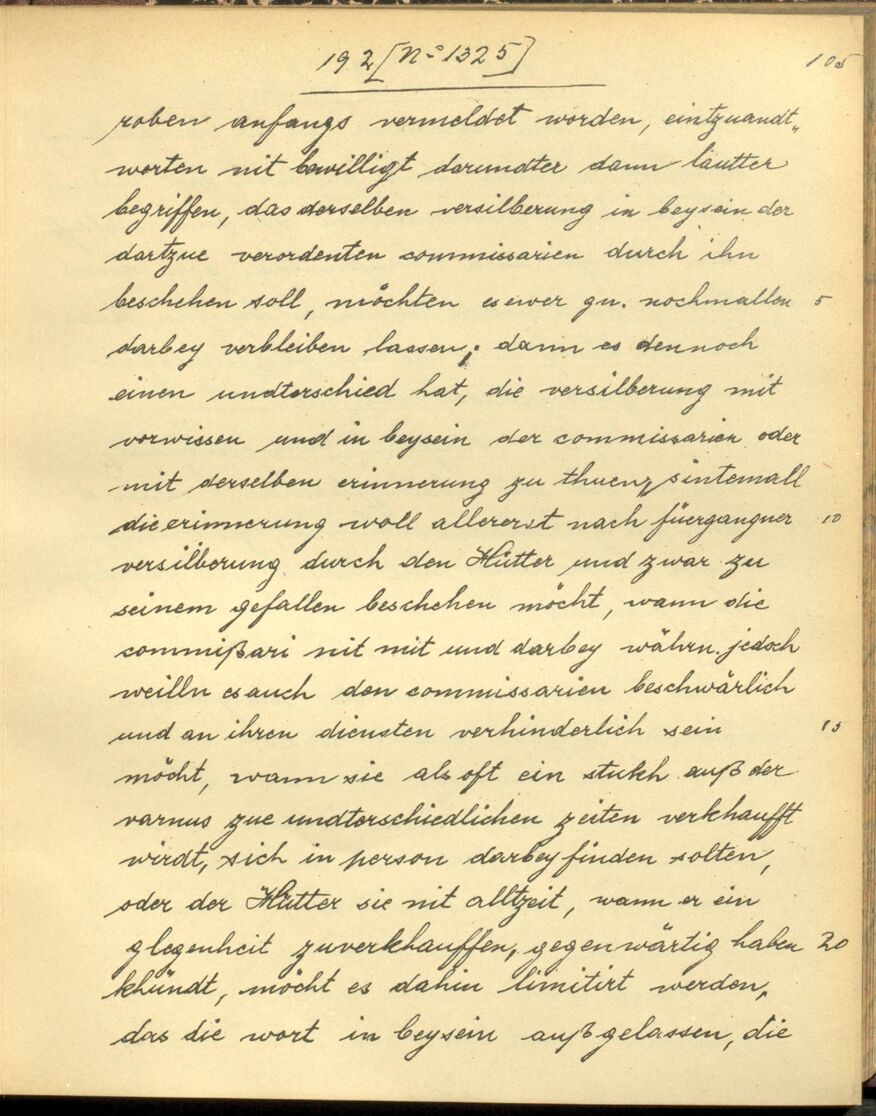 192 [No 1325]
105
roben anfangs vermeldet worden, eintzuandt„
worten nit bewilligt darundter dann lautter
begriffen, das derselben versilberung in beysein der
dartzue verordenten commissarien durch ihn
beschehen soll, möchten es ewer gn. nochmallen 5
darbey verbleiben lassen; dann es dennoch
einen undterschied hat, die versilberung mit
vorwissen und in beysein der commissarien oder
mit derselben erinnerung zu thuen, sintemall
die erinnerung woll allererst nach füergangner 10
versilberung durch den Hütter und zwar zu
seinem gefallen beschehen möcht, wann die
commißari nit mit und darbey währn. jedoch
weilln es auch den commissarien beschwärlich
und an ihren diensten verhinderlich sein 15
möcht, wann sie als oft ein stukh auß der
varnus zue undterschiedlichen zeiten verkhaufft
wirdt, sich in person darbey finden solten,
oder der Hütter sie nit alltzeit, wann er ein
glegenheit zuverkhauffen, gegenwärtig haben 20
khündt, möcht es dahin limitirt werden,
das die wort in beysein außgelassen, die